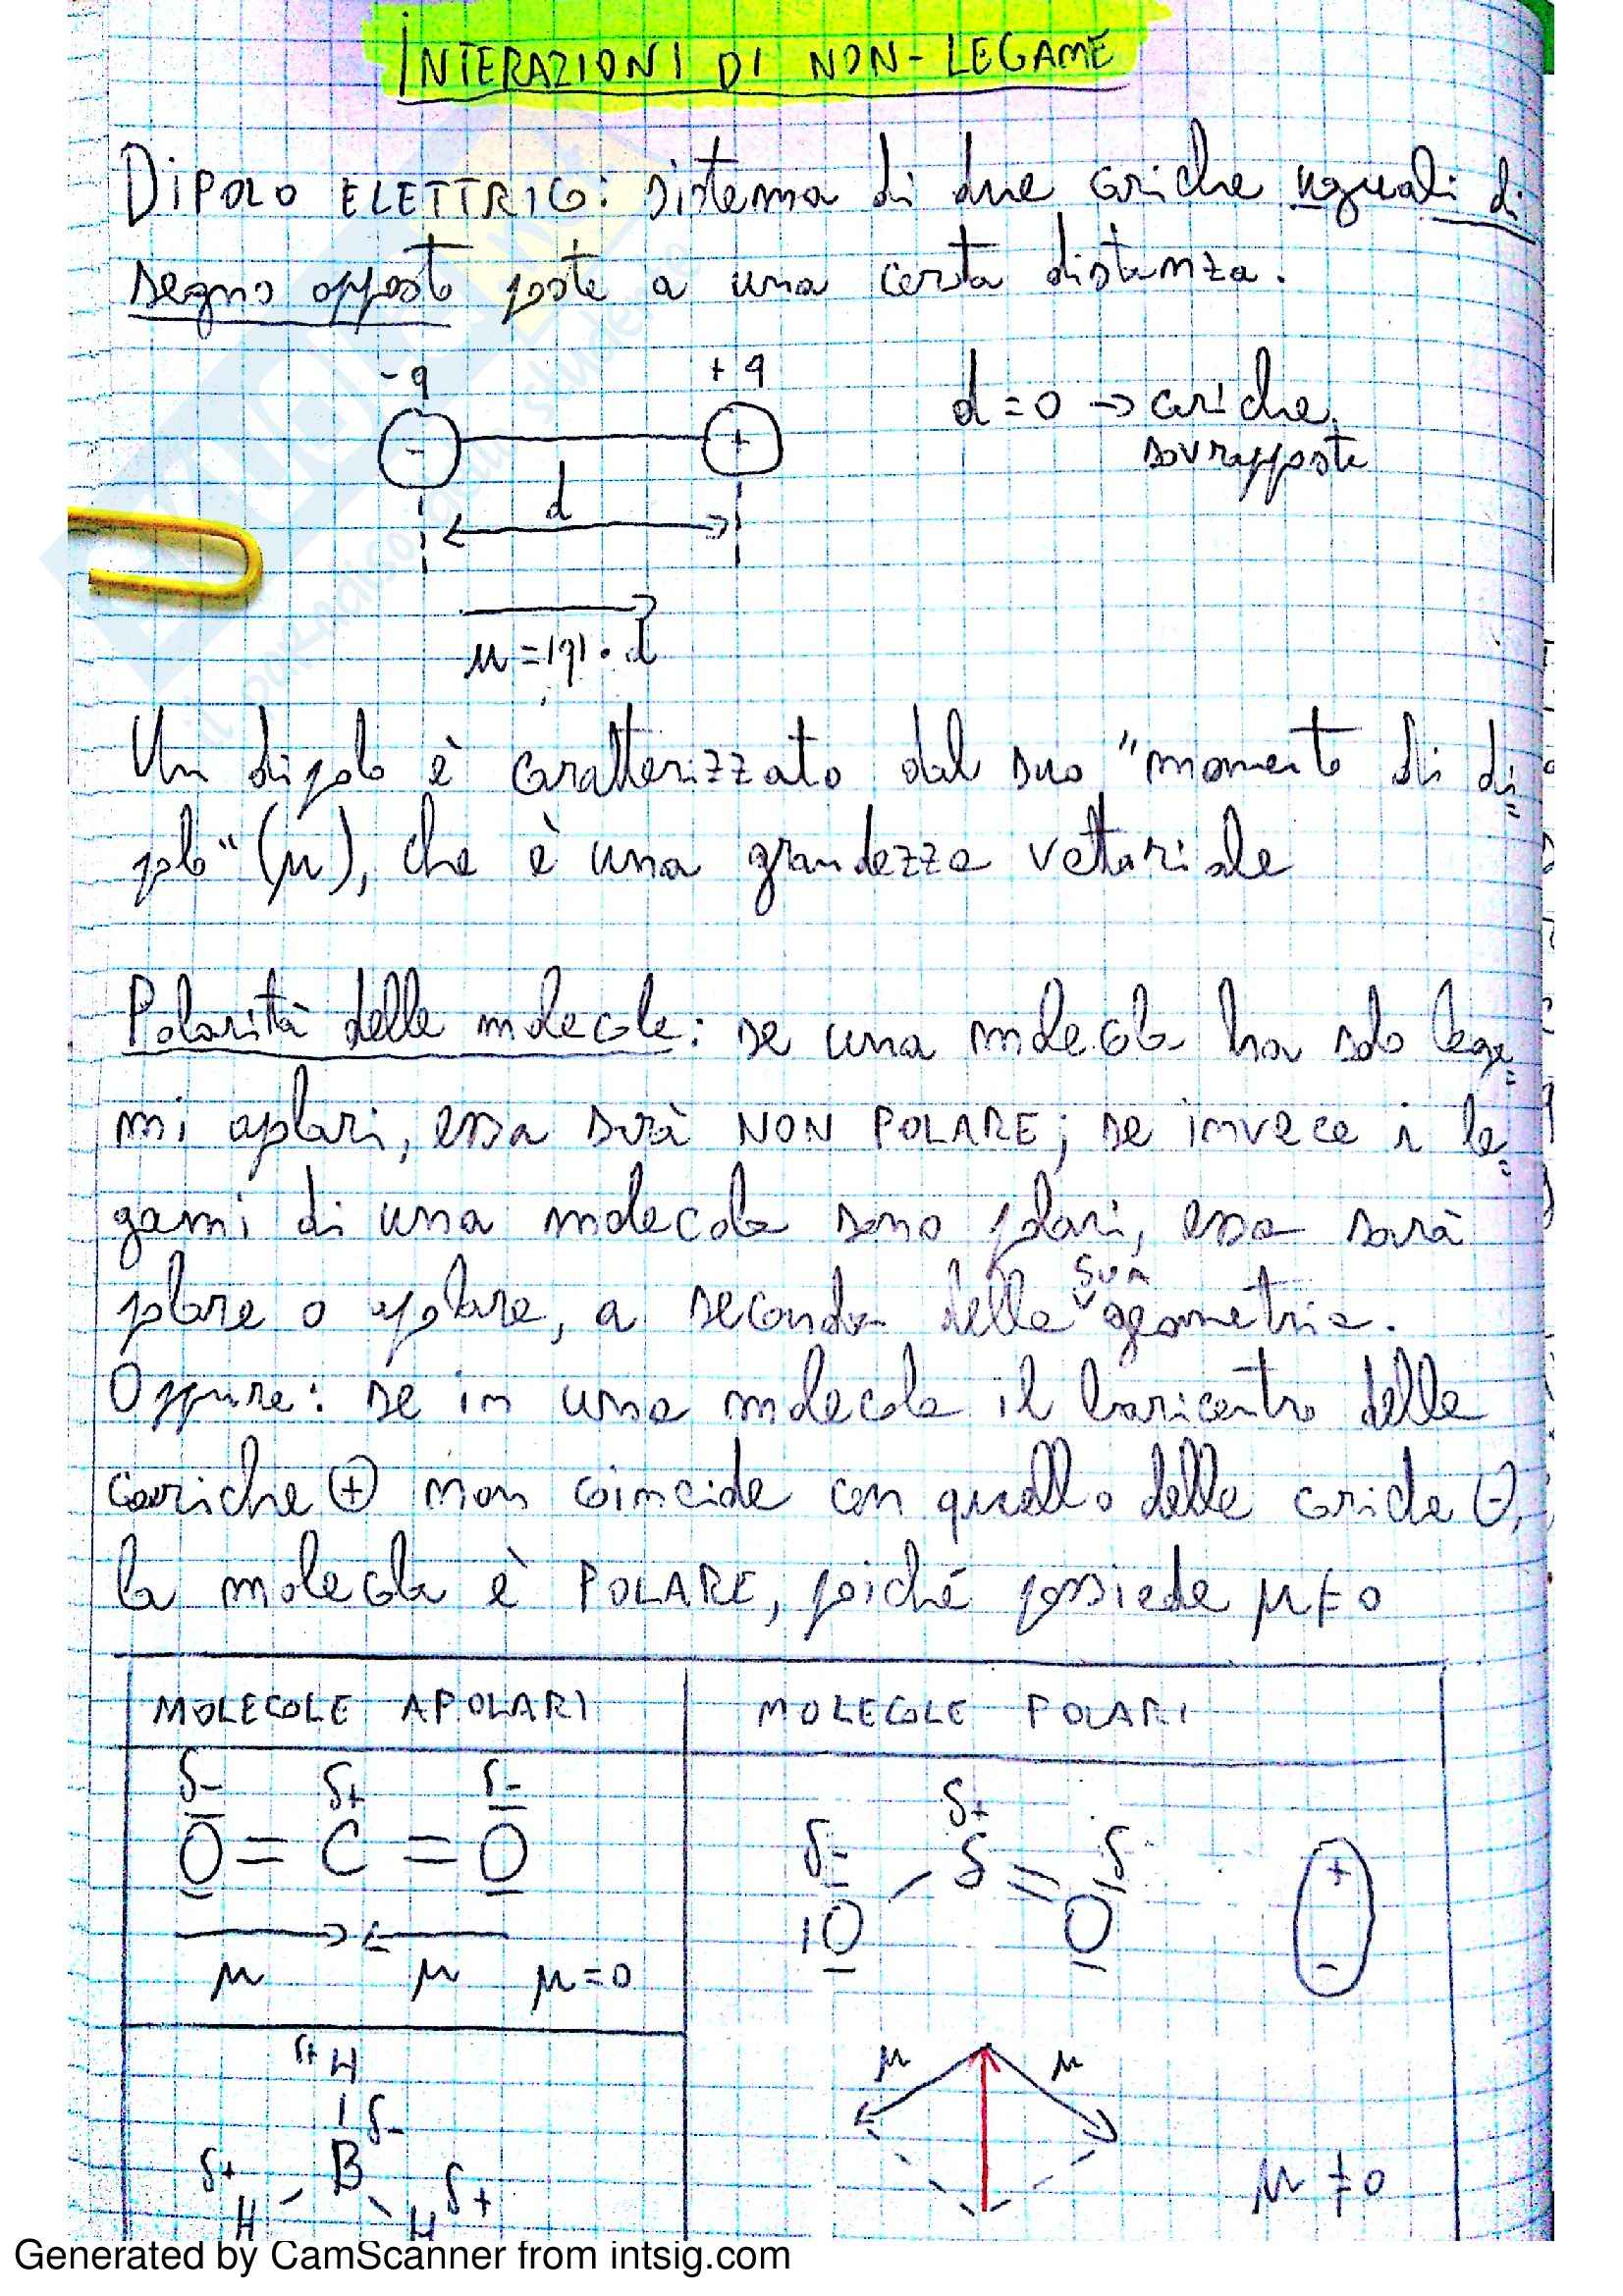 INTERAZIONI DI NON-LEGAME
DIPOLO ELETTRICO: sistema di due cariche uguali di
segno opposto poste a una certa distanza.
-q +q
- +
d=0 → cariche
sovrapposte
d
μ=|q|·d
Un dipolo è caratterizzato dal suo "momento di di=
polo" (μ), che è una grandezza vettoriale
Polarità delle molecole: se una molecola ha solo lega=
mi apolari, essa sarà NON POLARE; se invece i le=
gami di una molecola sono polari, essa sarà
polare o apolare, a seconda della sua geometria.
Oppure: se in una molecola il baricentro delle
cariche ⊕ non coincide con quello delle cariche ⊖,
la molecola è POLARE, poiché possiede μ≠0
MOLECOLE APOLARI
MOLECOLE POLARI
δ- δ+ δ-
O = C = O
μ μ μ=0
δ+ H
| δ-
δ+ B δ+
H H
δ+
δ- S δ-
|O O
+
-
μ μ
μ ≠ 0
il paradiso dello studente
Generated by CamScanner from intsig.com